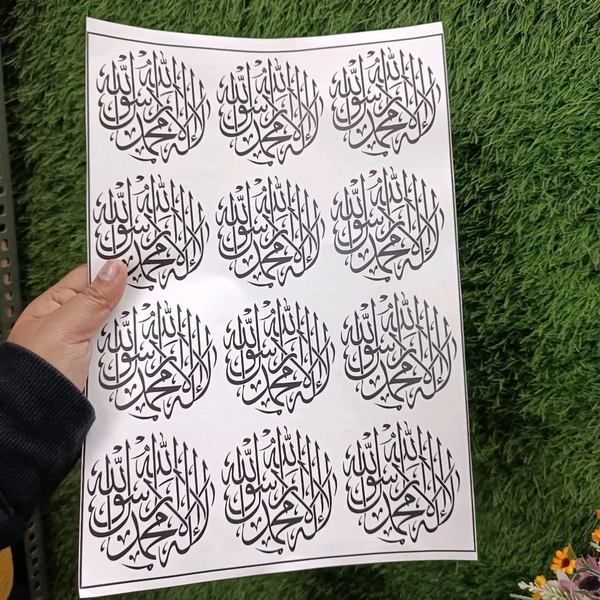 لا إله إلا الله محمد رسول الله لا إله إلا الله محمد رسول الله لا إله إلا الله محمد رسول الله
لا إله إلا الله محمد رسول الله لا إله إلا الله محمد رسول الله لا إله إلا الله محمد رسول الله
لا إله إلا الله محمد رسول الله لا إله إلا الله محمد رسول الله لا إله إلا الله محمد رسول الله
لا إله إلا الله محمد رسول الله لا إله إلا الله محمد رسول الله لا إله إلا الله محمد رسول الله